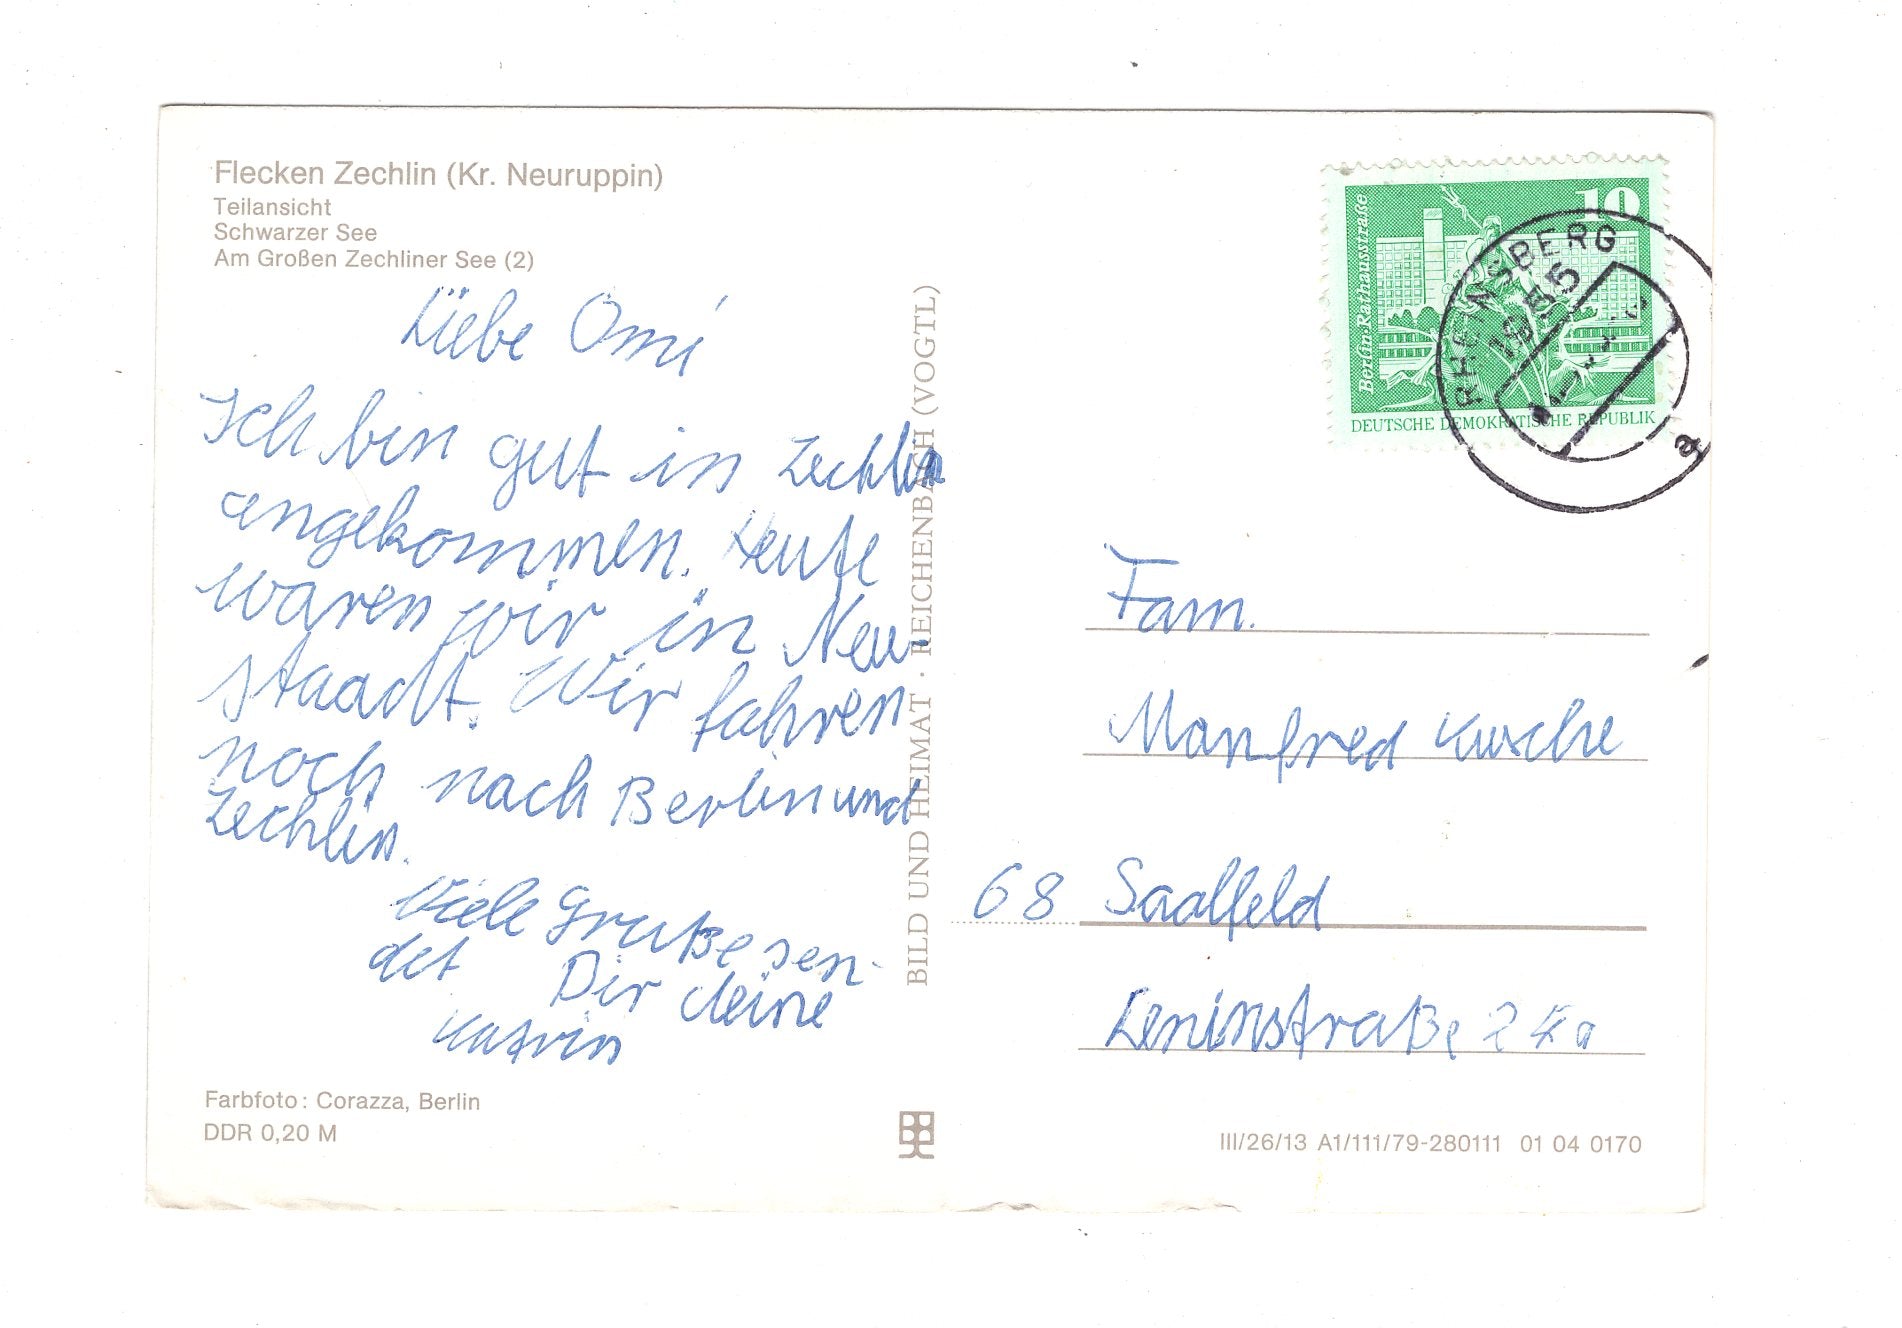 Flecken Zechlin (Kr. Neuruppin)
Teilansicht
Schwarzer See
Am Großen Zechliner See (2)
Liebe Omi
Ich bin gut in Zechlin
angekommen. Heute
waren wir in Neu-
staadt. Wir fahren
noch nach Berlin und
Zechlin.
Viele Graße sen-
det Dir deine
Katrin
Farbfoto: Corazza, Berlin
DDR 0,20 M
BILD UND HEIMAT · REICHENBACH (VOGTL)
10
Berlin·Rathausstraße
DEUTSCHE DEMOKRATISCHE REPUBLIK
RHEINSBERG
1955
a
Fam.
Manfred Kusche
68 Saalfeld
Leninstraße
III/26/13 A1/111/79-280111 01 04 0170